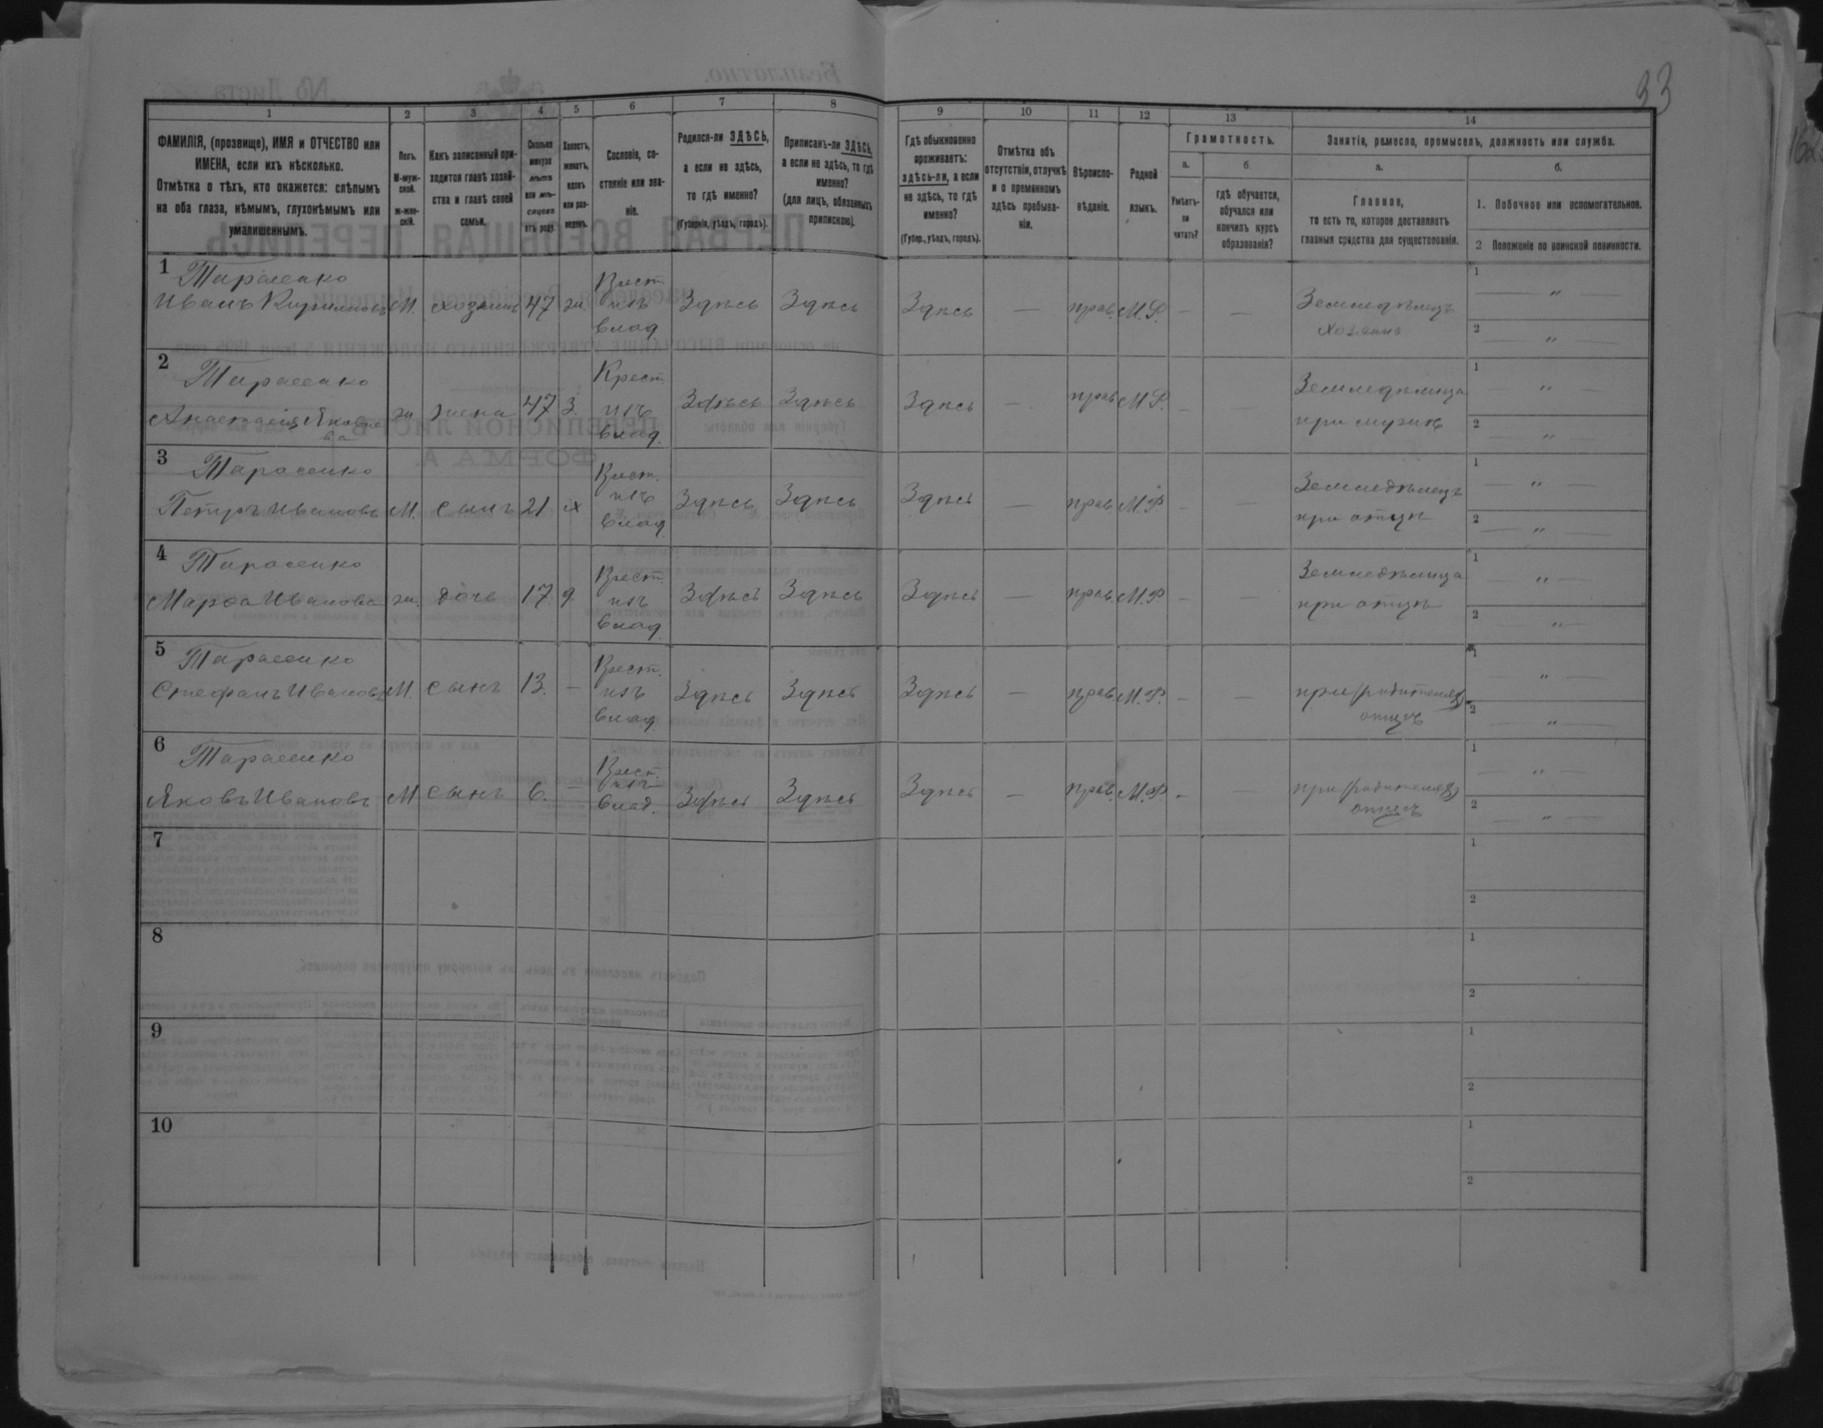 93
1 2 3 4 5 6 7 8 9 10 11 12 13 14
ФАМИЛІЯ, (прозвище), ИМЯ и ОТЧЕСТВО или
ИМЕНА, если ихъ нѣсколько.
Отмѣтка о тѣхъ, кто окажется: слѣпымъ
на оба глаза, нѣмымъ, глухонѣмымъ или
умалишеннымъ.
Полъ.
М-муж-
ской.
ж-жен-
скій.
Какъ записанный при-
ходится главѣ хозяй-
ства и главѣ своей
семьи.
Сколько
минуло
лѣтъ
или мѣ-
сяцевъ
отъ роду.
Холостъ,
женатъ,
вдовъ
или раз-
веденъ.
Сословіе, со-
стояніе или зва-
ніе.
Родился-ли ЗДѢСЬ,
а если не здѣсь,
то гдѣ именно?
(Губернія, уѣздъ, городъ).
Приписанъ-ли ЗДѢСЬ,
а если не здѣсь, то гдѣ
именно?
(для лицъ, обязанныхъ
припискою).
Гдѣ обыкновенно
проживаетъ:
здѣсь-ли, а если
не здѣсь, то гдѣ
именно?
(Губер., уѣздъ, городъ).
Отмѣтка объ
отсутствіи, отлучкѣ
и о временномъ
здѣсь пребыва-
ніи.
Вѣроиспо-
вѣданіе.
Родной
языкъ.
Грамотность.
а.
Умѣетъ-
ли
читать?
б.
гдѣ обучается,
обучался или
кончилъ курсъ
образованія?
Занятіе, ремесло, промыселъ, должность или служба.
а.
Главное,
то есть то, которое доставляетъ
главныя средства для существованія.
б.
1. Побочное или вспомогательное.
2 Положеніе по воинской повинности.
1 Тарасенко
Иванъ Кириловъ М. хозяинъ 47 ж. Крест. изъ влад. Здѣсь Здѣсь Здѣсь — прав. М.Р. — — Земледѣлецъ хозяинъ 1 — " — 2 — " —
2 Тарасенко
Анастасія Яковлева ж. жена 47 З. Крест. изъ влад. Здѣсь Здѣсь Здѣсь — прав. М.Р. — — Земледѣлица при мужѣ 1 — " — 2 — " —
3 Тарасенко
Петръ Ивановъ М. сынъ 21 х Крест. изъ влад. Здѣсь Здѣсь Здѣсь — прав. М.Р. — — Земледѣлецъ при отцѣ 1 — " — 2 — " —
4 Тарасенко
Марѳа Иванова ж. дочь 17 д Крест. изъ влад. Здѣсь Здѣсь Здѣсь — прав. М.Р. — — Земледѣлица при отцѣ 1 — " — 2 — " —
5 Тарасенко
Стефанъ Ивановъ М. сынъ 13. — Крест. изъ влад. Здѣсь Здѣсь Здѣсь — прав. М.Р. — — при отцѣ 1 — " — 2 — " —
6 Тарасенко
Яковъ Ивановъ М сынъ 6. — Крест. изъ влад. Здѣсь Здѣсь Здѣсь — прав. М.Р. — — при отцѣ 1 — " — 2 — " —
7 1 2
8 1 2
9 1 2
10 1 2